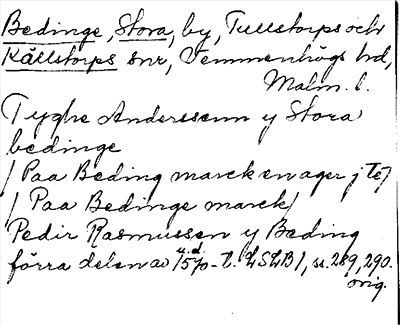 Bedinge, Stora, by, Tullstorps och
Källstorps snr, Vemmenhögs hd,
Malm. l.
Tyghe Anderssenn y Stora
bedinge
/ Paa Beding marck en ager j te/
/ Paa Bedinge marck/
Pedir Rasmussen y Beding
förra delen av 1570-t. LSLB1, ss. 289, 290.
orig.